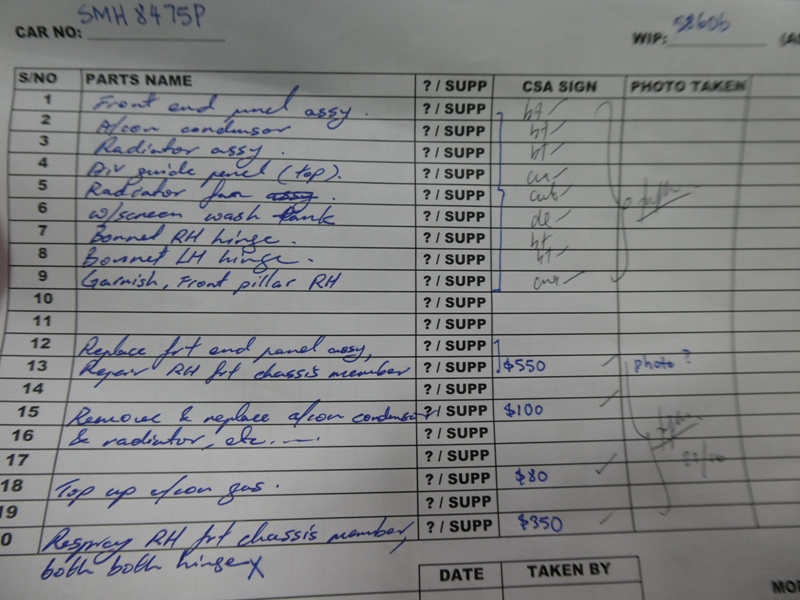 CAR NO: SMH 8475P
WIP: 52606
S/NO PARTS NAME ? / SUPP CSA SIGN PHOTO TAKEN
1 Front end panel assy. ? / SUPP bt
2 A/con condensor ? / SUPP bt
3 Radiator assy. ? / SUPP bt
4 Air guide panel (top). ? / SUPP
5 Radiator fan assy ? / SUPP
6 w/screen wash tank ? / SUPP de
7 Bonnet RH hinge. ? / SUPP bt
8 Bonnet LH hinge. ? / SUPP bt
9 Garnish, Front pillar RH ? / SUPP
10 ? / SUPP
11 ? / SUPP
12 Replace frt end panel assy, ? / SUPP
13 Repair RH frt chassis member ? / SUPP $550 photo ?
14 ? / SUPP
15 Remove & replace a/con condensor ? / SUPP $100
16 & radiator, etc. ? / SUPP
17 ? / SUPP
18 Top up a/con gas. ? / SUPP $80
19 ? / SUPP
0 Respray RH frt chassis member, ? / SUPP $350
both both hinge x
DATE TAKEN BY
MO